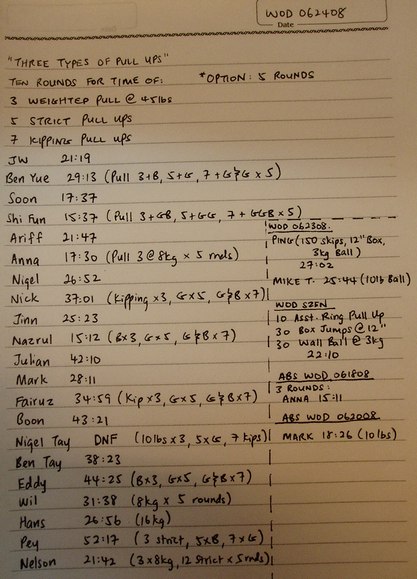 WOD 062408
Date
"THREE TYPES OF PULL UPS"
TEN ROUNDS FOR TIME OF: *OPTION: 5 ROUNDS
3 WEIGHTED PULL @ 45lbs
5 STRICT PULL UPS
7 KIPPING PULL UPS
JW 21:19
Ben Yue 29:13 (Pull 3+B, 5+G, 7+G&G x 5)
Soon 17:37
Shi Fun 15:37 (Pull 3+GB, 5+GG, 7+GGB x 5)
Ariff 21:47
Anna 17:30 (Pull 3 @ 8kg x 5 rnds)
Nigel 26:52
Nick 37:01 (Kipping x3, Gx5, G&B x7)
Jinn 25:23
Nazrul 15:12 (Bx3, Gx5, G&B x7)
Julian 42:10
Mark 28:11
Fairuz 34:59 (Kip x3, Gx5, G&B x7)
Boon 43:21
Nigel Tay DNF (10lbs x3, 5xG, 7 kips)
Ben Tay 38:23
Eddy 44:25 (Bx3, Gx5, G&B x7)
Wil 31:38 (8kg x 5 rounds)
Hans 26:56 (16kg)
Pey 52:17 (3 strict, 5xB, 7xG)
Nelson 21:42 (3x8kg, 12 strict x 5rnds)
WOD 062308
PING (150 skips, 12" Box,
3kg Ball)
27:02
MIKE T. 25:44 (10lb Ball)
10 Asst. Ring Pull Up
30 Box Jumps @ 12"
30 Wall Ball @ 3kg
22:10
ABS WOD 061808
3 ROUNDS:
ANNA 15:11
ABS WOD 062008
MARK 18:26 (10lbs)